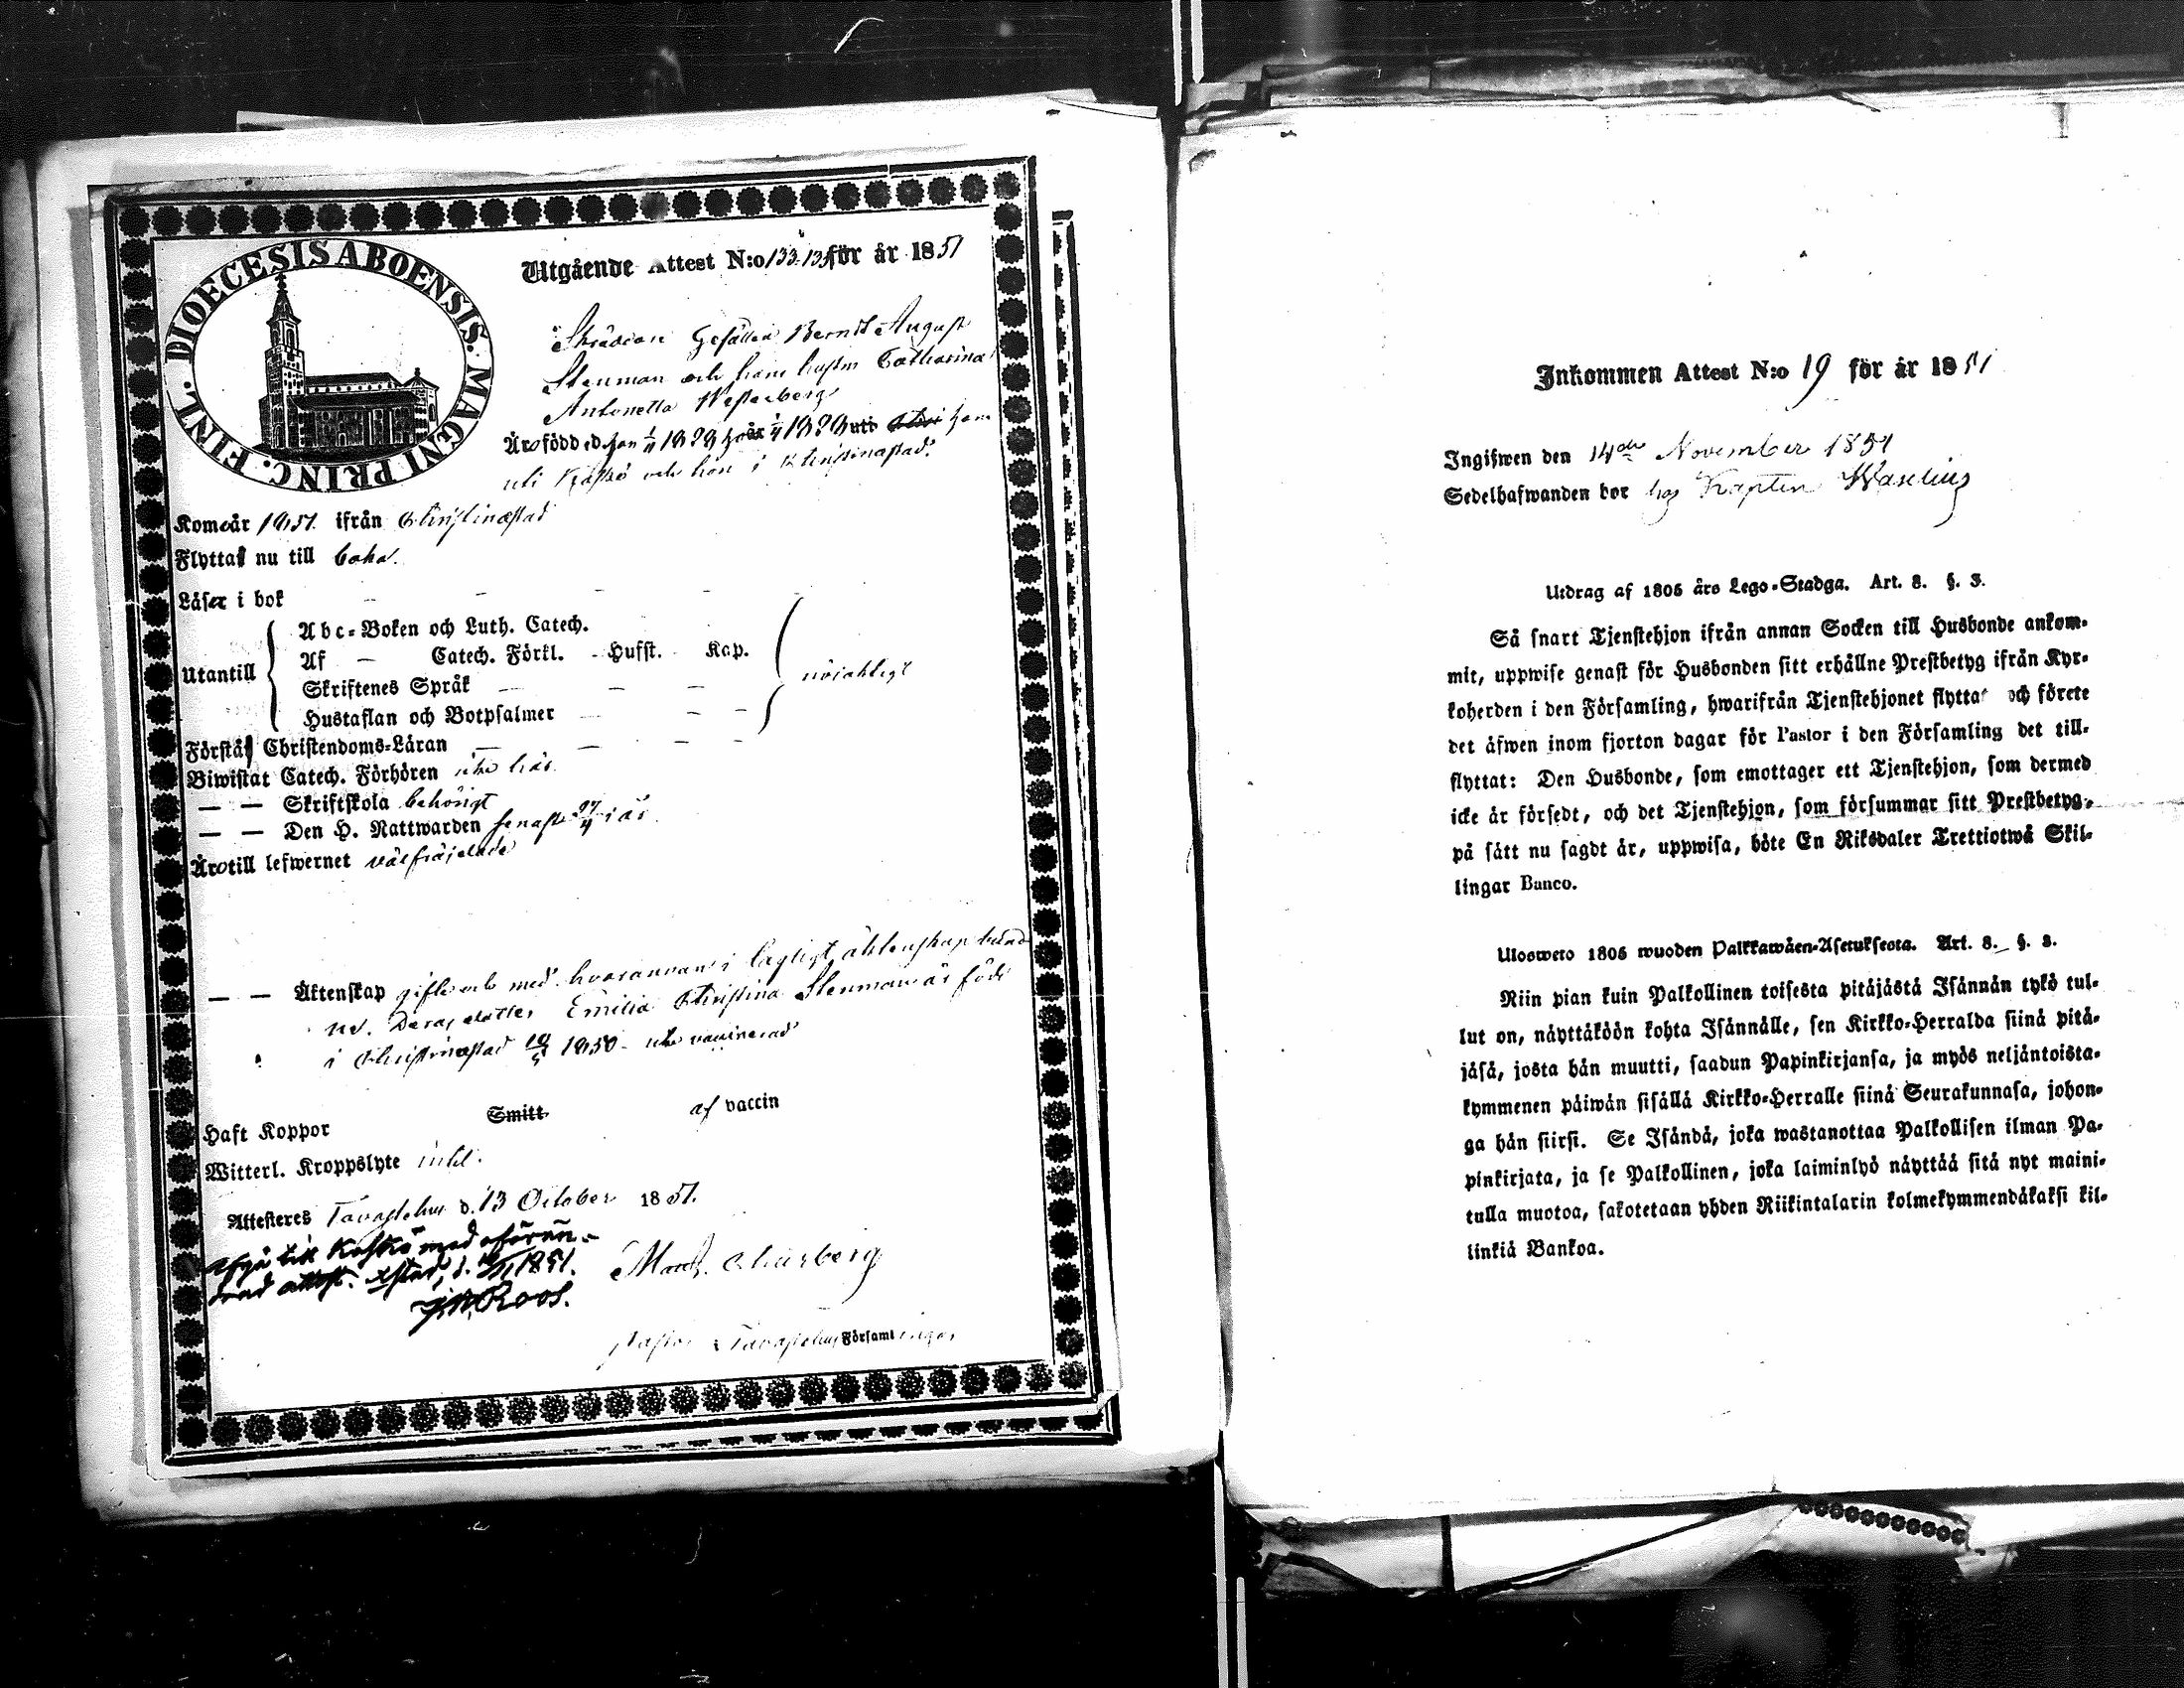 DIOECESIS ABOENSIS. MAGNI PRINC. FINL.
Utgående Attest N:o 133-135 för år 1851
Skräddare Gesällen Berndt August
Stenman och hans hustru Catharina
Antonetta Westerberg
Äro född
uti Kaskö och hon i Christinastad.
Kom år 1851. ifrån Christinastad
Flyttat nu till
Läser i bok
Utantill
Abc-Boken och Luth. Catech.
Af — Catech. Förkl. Hufst. Kap.
Skriftenes Språk
Hustaflan och Botpsalmer
nöjaktigt
Förstår Christendoms-Läran
Biwistat Catech. Förhören icke här.
— — Skriftskola behörigt
— — Den H. Nattwarden senast 27/4 i år.
Äro till lefwernet välfräjdade
— — Äktenskap gifte och med hvarannan i lagligt äktenskap
Deras dotter Emilia Christina Stenman är född
i Christinastad 1850 - icke vaccinerad
Haft Koppor Smitt. af vaccin
Witterl. Kroppslyte intet.
Attesteres Tavastehus d. 13 October 1851.
Afgå till Kaskö med oförän-
drad attest. Xstad, d. 1851.
Roos.
Pastor i Tavastehus Församlingar
Inkommen Attest N:o 19 för år 1851
Ingifwen den 14de November 1851
Sedelhafwanden bor hos Kapten Waselius
Utdrag af 1805 års Lego-Stadga. Art. 8. §. 3.
Så snart Tjenstehjon ifrån annan Socken till Husbonde ankom-
mit, uppwise genast för Husbonden sitt erhållne Prestbetyg ifrån Kyr-
koherden i den Församling, hwarifrån Tjenstehjonet flyttat och förete
det äfwen inom fjorton dagar för Pastor i den Församling det till-
flyttat: Den Husbonde, som emottager ett Tjenstehjon, som dermed
icke är försedt, och det Tjenstehjon, som försummar sitt Prestbetyg,
på sätt nu sagdt är, uppwisa, böte En Riksdaler Trettiotwå Skil-
lingar Banco.
Uloswero 1805 wuoden Palkkawäen-Asetuksesta. Art. 8. §. 3.
Niin pian kuin Palkollinen toisesta pitäjästä Isännän tykö tul-
lut on, näyttäköön kohta Isännälle, sen Kirkko-Herralda siinä pitä-
jäsä, josta hän muutti, saadun Papinkirjansa, ja myös neljäntoista-
kymmenen päiwän sisällä Kirkko-Herralle siinä Seurakunnasa, johon-
ga hän siirsi. Se Isändä, joka wastanottaa Palkollisen ilman Pa-
pinkirjata, ja se Palkollinen, joka laiminlyö näyttää sitä nyt maini-
tulla muotoa, sakotetaan yhden Riikintalarin kolmekymmendäkaksi kil-
linkiä Bankoa.